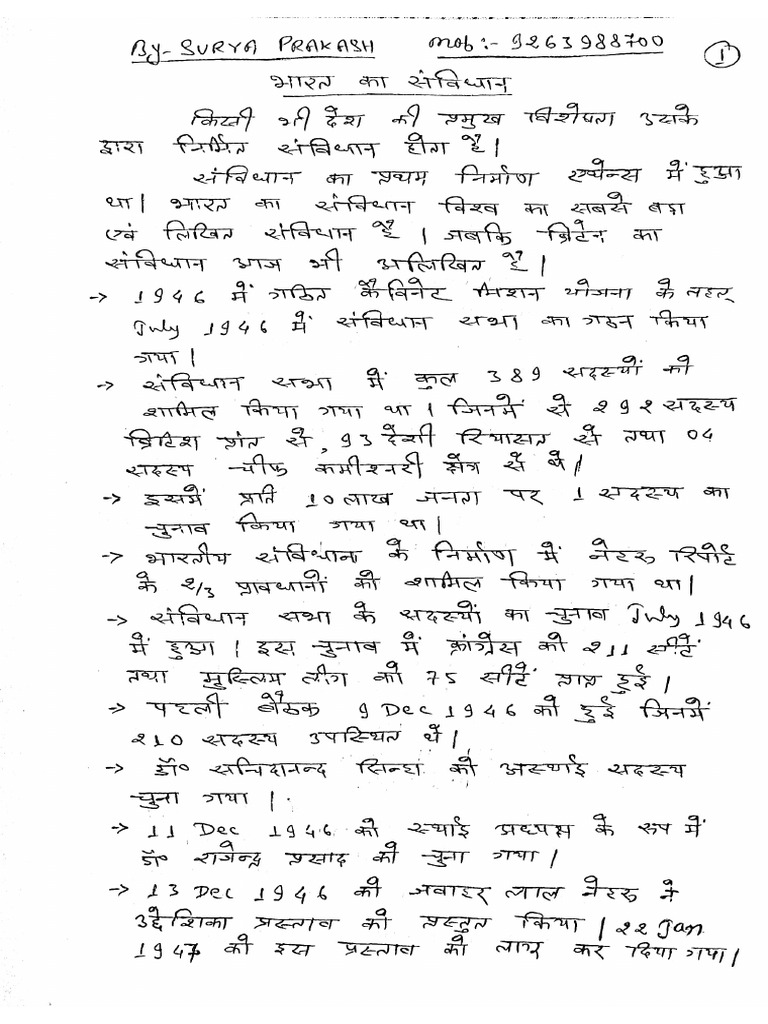 By- SURYA PRAKASH mob:- 9263988700 1
भारत का संविधान
किसी भी देश की प्रमुख विशेषता उसके
द्वारा निर्मित संविधान होता है।
संविधान का प्रथम निर्माण एथेन्स में हुआ
था। भारत का संविधान विश्व का सबसे बड़ा
एवं लिखित संविधान है। जबकि ब्रिटेन का
संविधान आज भी अलिखित है।
-> 1946 में गठित कैबिनेट मिशन योजना के तहत्
July 1946 में संविधान सभा का गठन किया
गया।
-> संविधान सभा में कुल 389 सदस्यों को
शामिल किया गया था। जिनमें से 292 सदस्य
ब्रिटिश प्रांत से, 93 देशी रियासत से तथा 04
सदस्य चीफ कमीश्नरी क्षेत्र से थे।
-> इसमें प्रति 10 लाख जनता पर 1 सदस्य का
चुनाव किया गया था।
-> भारतीय संविधान के निर्माण में नेहरु रिपोर्ट
के 2/3 प्रावधानों को शामिल किया गया था।
-> संविधान सभा के सदस्यों का चुनाव July 1946
में हुआ। इस चुनाव में कांग्रेस को 211 सीटें
तथा मुस्लिम लीग को 75 सीटें प्राप्त हुई।
-> पहली बैठक 9 Dec 1946 को हुई जिनमें
210 सदस्य उपस्थित थे।
-> डॉ० सचिदानन्द सिन्हा को अस्थाई सदस्य
चुना गया।
-> 11 Dec 1946 को स्थाई अध्यक्ष के रूप में
डॉ० राजेन्द्र प्रसाद को चुना गया।
-> 13 Dec 1946 को जवाहर लाल नेहरु ने
उद्देशिका प्रस्ताव को प्रस्तुत किया। 22 Jan
1947 को इस प्रस्ताव को लागू कर दिया गया।